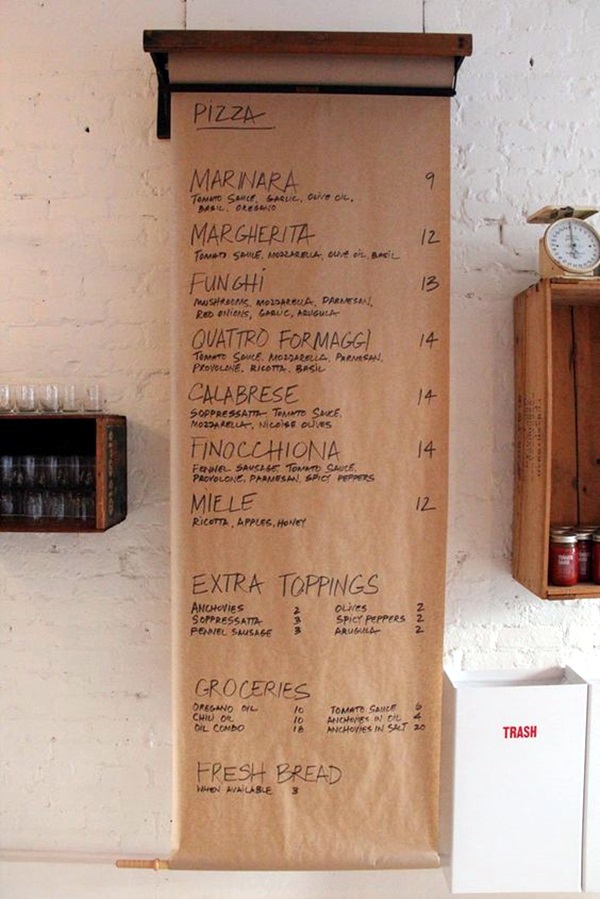 PIZZA
MARINARA 9
TOMATO SAUCE, GARLIC, OLIVE OIL,
BASIL, OREGANO
MARGHERITA 12
TOMATO SAUCE, MOZZARELLA, OLIVE OIL, BASIL
FUNGHI 13
MUSHROOMS, MOZZARELLA, PARMESAN,
RED ONIONS, GARLIC, ARUGULA
QUATTRO FORMAGGI 14
TOMATO SAUCE, MOZZARELLA, PARMESAN,
PROVOLONE, RICOTTA, BASIL
CALABRESE 14
SOPPRESSATTA TOMATO SAUCE,
MOZZARELLA, NICOISE OLIVES
FINOCCHIONA 14
FENNEL SAUSAGE, TOMATO SAUCE,
PROVOLONE, PARMESAN, SPICY PEPPERS
MIELE 12
RICOTTA, APPLES, HONEY
EXTRA TOPPINGS
ANCHOVIES 2 OLIVES 2
SOPPRESSATTA 3 SPICY PEPPERS 2
FENNEL SAUSAGE 3 ARUGULA 2
GROCERIES
OREGANO OIL 10 TOMATO SAUCE 6
CHILI OIL 10 ANCHOVIES IN OIL 4
OIL COMBO 18 ANCHOVIES IN SALT 20
FRESH BREAD
WHEN AVAILABLE 3
TRASH